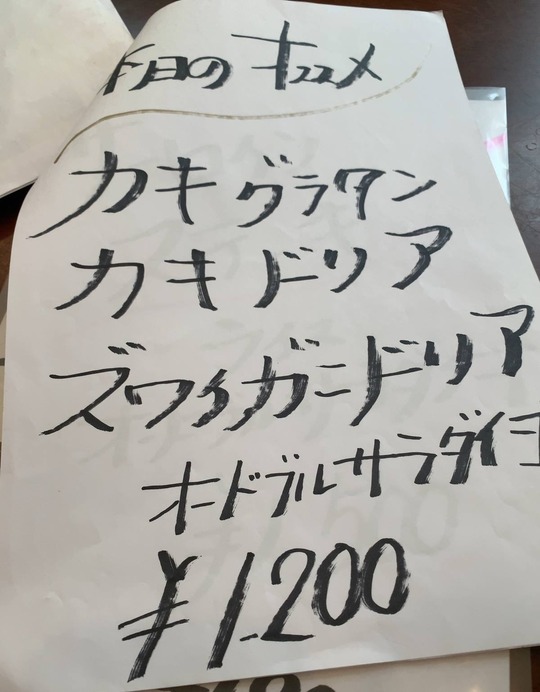 本日のオススメ
カキグラタン
カキドリア
ズワイガニドリア
オードブルサラダイ
¥1.200